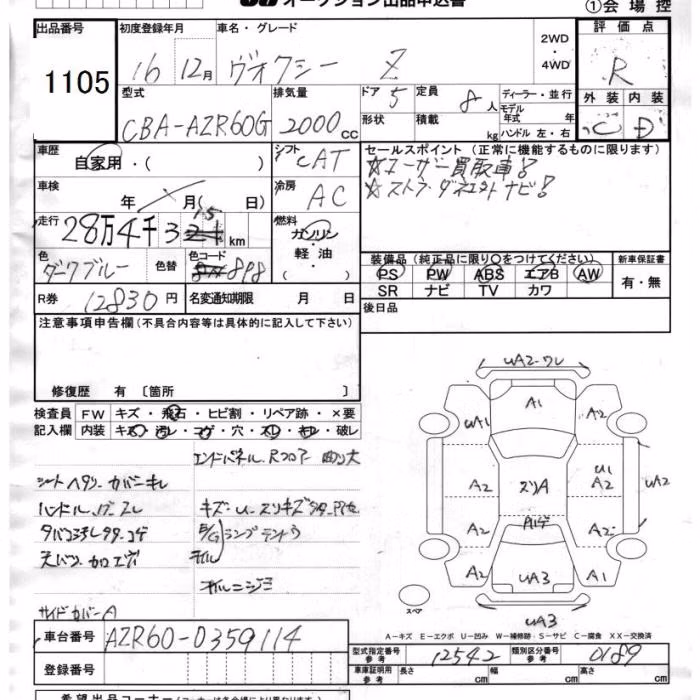 オークション出品申込書
①会場控
出品番号 初度登録年月 車名・グレード 2WD・4WD 評価点
1105 16 12月 ヴォクシー Z R
型式 排気量 ドア 5 定員 8人 ディーラー・並行
CBA-AZR60G 2000cc 形状 積載 kg モデル年式 年 ハンドル 左・右
外装 内装
C D
車歴 自家用・( ) シフト CAT セールスポイント(正常に機能するものに限ります)
☆ユーザー買取車!
車検 年 月( 日) 冷房 AC
走行 28万4千3 15 km 燃料 ガソリン・軽油・( )
色 ダークブルー 色替 色コード 898
装備品(純正品に限り○をつけてください) 新車保証書
PS PW ABS エアB AW 有・無
SR ナビ TV カワ
R券 12830円 名変通知期限 月 日 後日品
注意事項申告欄(不具合内容等は具体的に記入して下さい)
修復歴 有 〔箇所 〕
検査員記入欄 FW キズ・飛石・ヒビ割・リペア跡・×要
内装 キズ・汚レ・コゲ・穴・スレ・キレ・破レ
エンドパネル、Rフロアー 曲り大
シートヘタリ・カバーキレ
タバコ
サイドカバーA
UA2・ワレ
A1
UA1 A2
U1
A2 A2 UA2
A2 A2
A2 UA3 A1
UA3
スペア
A−キズ E−エクボ U−凹み W−補修跡・S−サビ C−腐食 XX−交換済
車台番号 AZR60-0359114
型式指定番号 参考 12542 類別区分番号 参考 0189
登録番号 車庫証明用 参考 長さ cm 幅 cm 高さ cm
希望出品コーナー